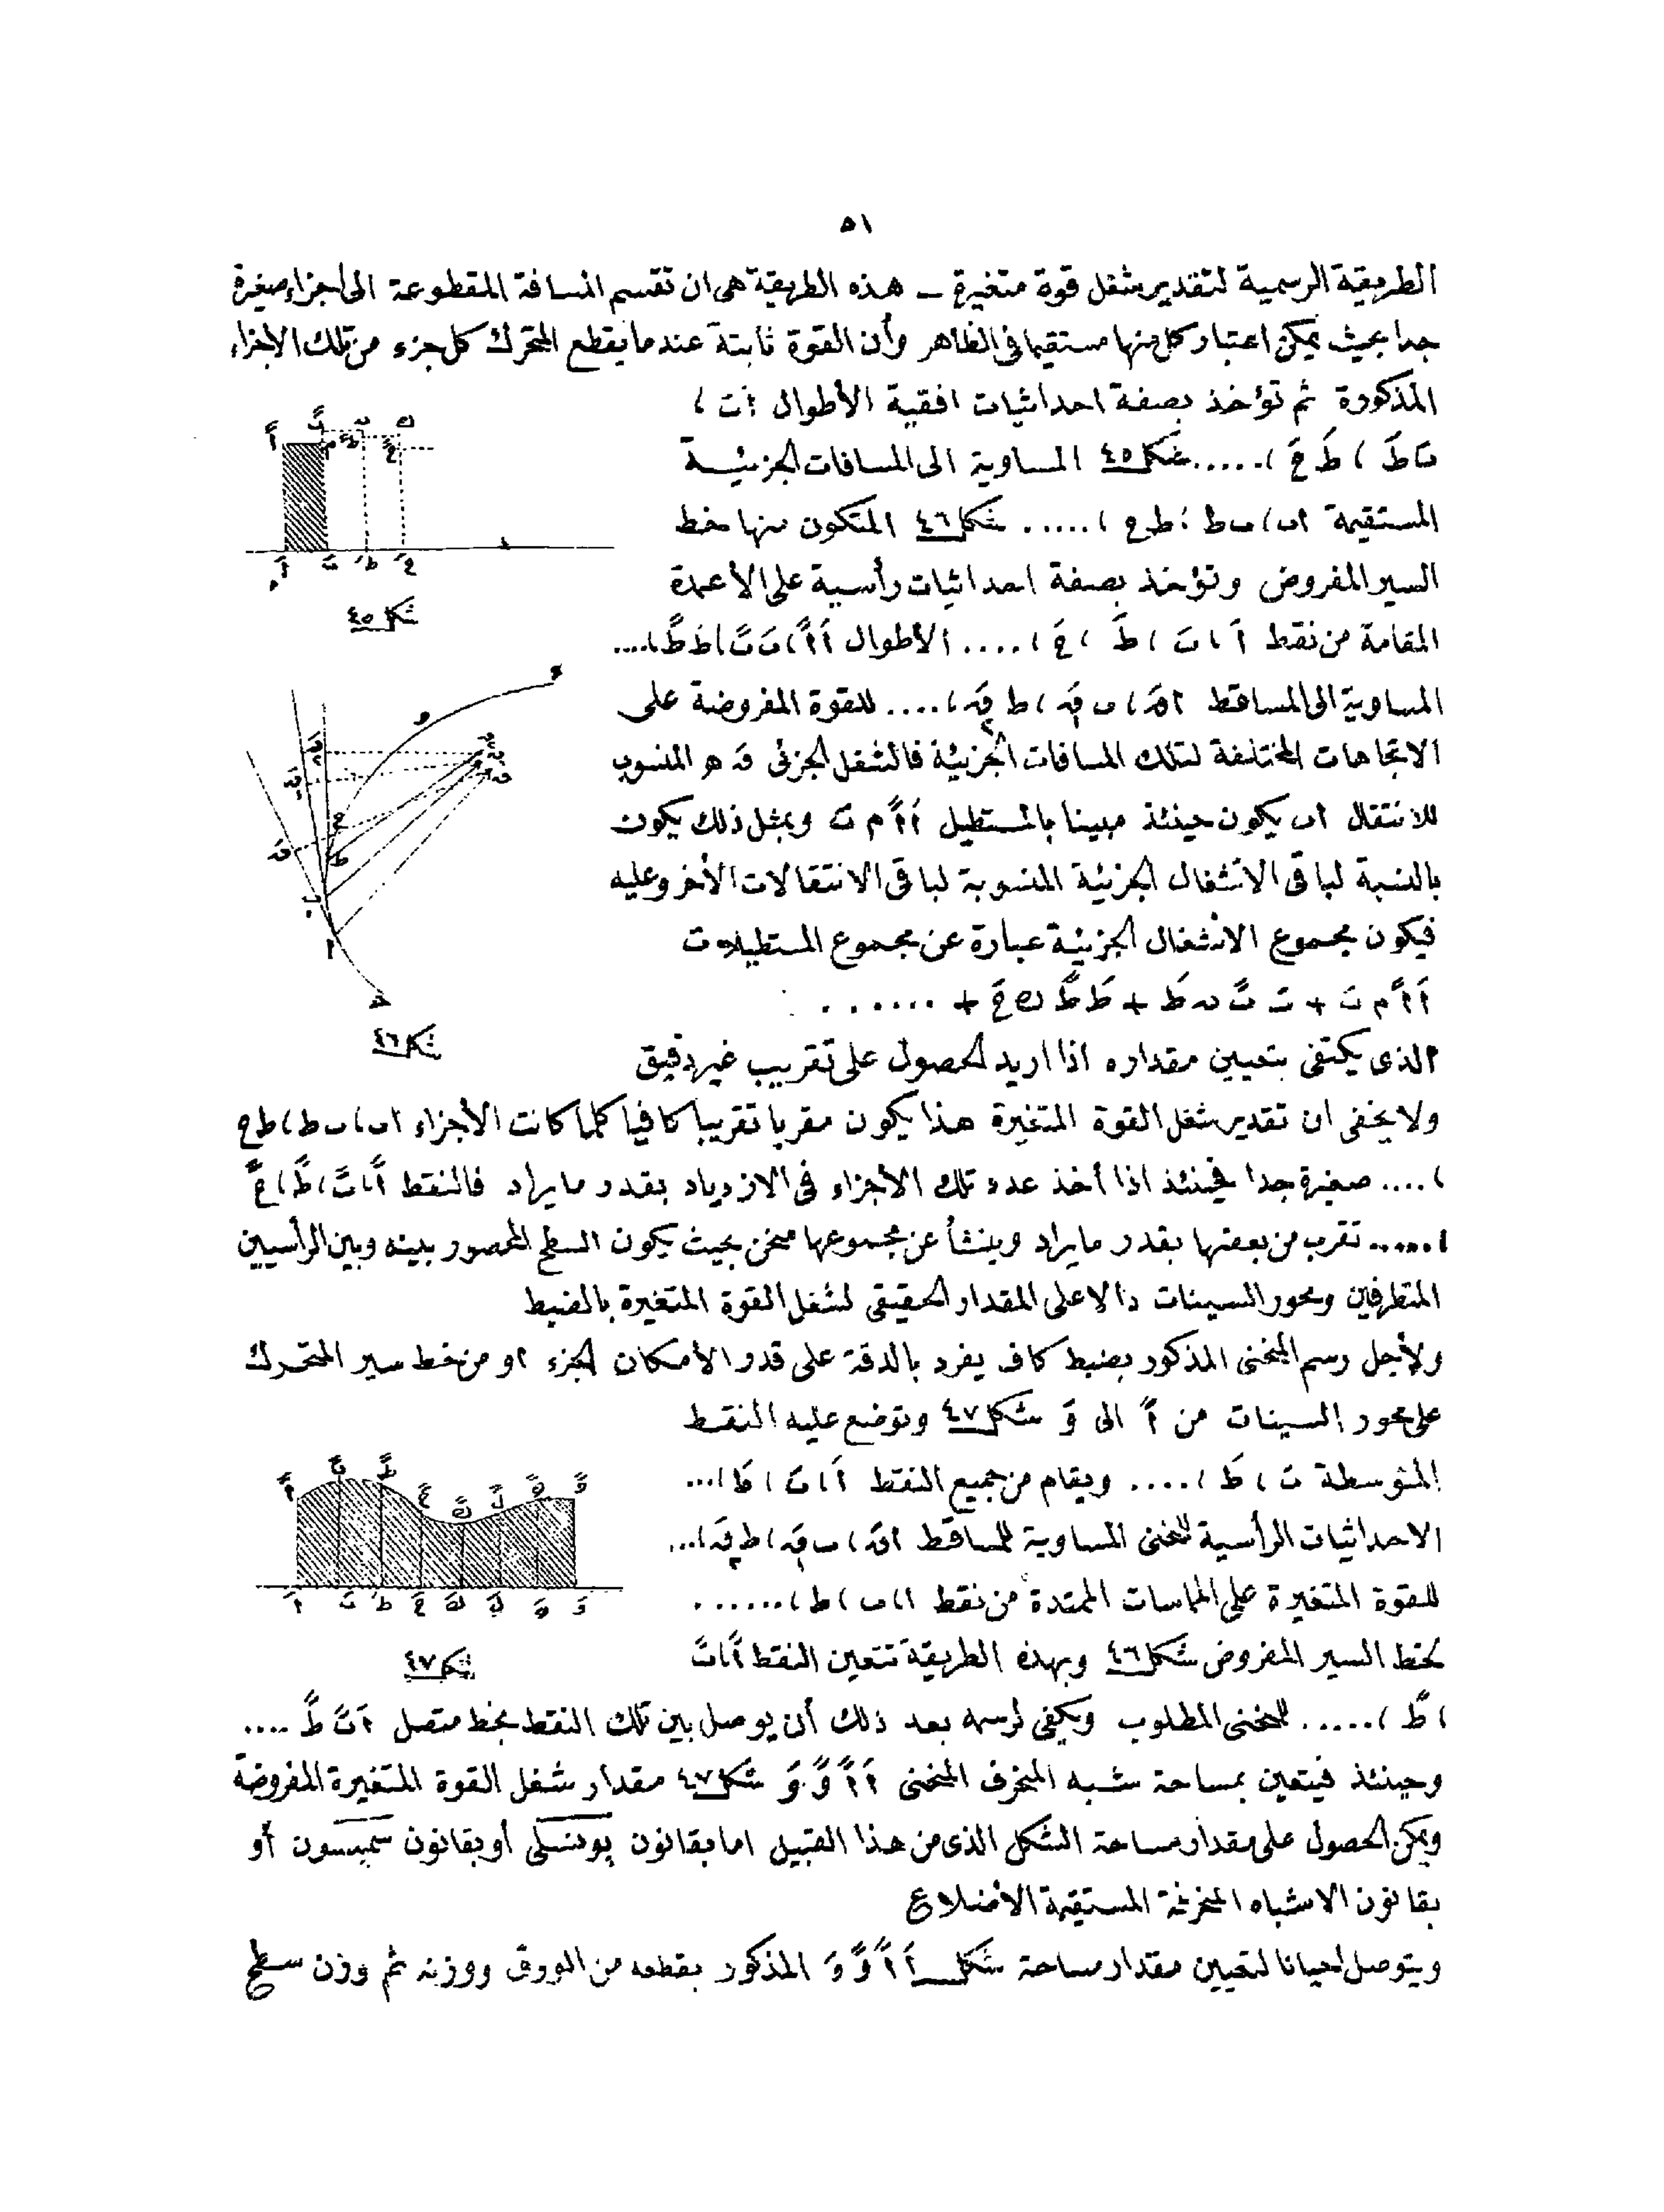 ٥١
الطريقة الرسمية لتقدير شغل قوة متغيرة ـ هذه الطريقة هى ان تقسم المسافة المقطوعة الى اجزاء صغيرة
جدا بحيث يمكن اعتبار كل منها مستقيما فى الظاهر وأن القوة ثابتة عندما يقطع المتحرك كل جزء من تلك الاجزاء
المذكورة ثم تؤخذ بصفة احداثيات افقية الأطوال
شكل ٤٥ المساوية الى المسافات الجزئية
المستقيمة اب ، ب ط ، ط ح ، ..... شكل ٤٦ المتكون منها خط
السير المفروض وتؤخذ بصفة احداثيات رأسية على الأعمدة
المقامة من نقط أَ ، بَ ، طَ ، حَ ، .... الأطوال
المساوية الى المساقط .... للقوة المفروضة على
الاتجاهات المختلفة لتلك المسافات الجزئية فالشغل الجزئى المنسوب
للانتقال اب يكون حينئذ مبينا بالمستطيل أَ أً م بَ وبمثل ذلك يكون
بالنسبة لباقى الاشغال الجزئية المنسوبة لباقى الانتقالات الأخر وعليه
فيكون مجموع الاشغال الجزئية عبارة عن مجموع المستطيلات
أَ أً م بَ + بَ بً ن طَ + طَ طً ك حَ + ......
الذى يكتفى بتعيين مقداره اذا اريد الحصول على تقريب غير دقيق
ولا يخفى ان تقدير شغل القوة المتغيرة هذا يكون مقربا تقريبا كافيا كلما كانت الأجزاء اب ، ب ط ، ط ح
، .... صغيرة جدا فحينئذ اذا أخذ عدد تلك الأجزاء فى الازدياد بقدر ما يراد فالنقط أً ، بً ، طً ، حً
، ...... تقرب من بعضها بقدر ما يراد وينشأ عن مجموعها منحن بحيث يكون السطح المحصور بينه وبين الرأسيين
المتطرفين ومحور السينات دالا على المقدار الحقيقى لشغل القوة المتغيرة بالضبط
ولأجل رسم المنحنى المذكور بضبط كاف يفرد بالدقة على قدر الأمكان الجزء او من خط سير المتحرك
على محور السينات من أَ الى وَ شكل ٤٧ وتوضع عليه النقط
المتوسطة بَ ، طَ ، .... ويقام من جميع النقط أَ ، بَ ، طَ ، ...
الاحداثيات الرأسية للمنحنى المساوية للمساقط
للقوة المتغيرة على المماسات الممتدة من نقط ا ، ب ، ط ، ......
لخط السير المفروض شكل ٤٦ وبهذه الطريقة تتعين النقط أً ، بً
، طً ، ..... للمنحنى المطلوب ويكفى لرسمه بعد ذلك أن يوصل بين تلك النقط بخط متصل أً بً طً ....
وحينئذ فيتعين بمساحة شبه المنحرف المنحنى أَ أً وً وَ شكل ٤٧ مقدار شغل القوة المتغيرة المفروضة
ويمكن الحصول على مقدار مساحة الشكل الذى من هذا القبيل اما بقانون پونسلى أو بقانون سمپسون أو
بقانون الاشباه المنحرفة المستقيمة الأضلاع
ويتوصل احيانا لتعيين مقدار مساحة شكل أَ أً وً وَ المذكور بقطعه من الورق ووزنه ثم وزن سطح
شكل ٤٥
شكل ٤٦
شكل ٤٧